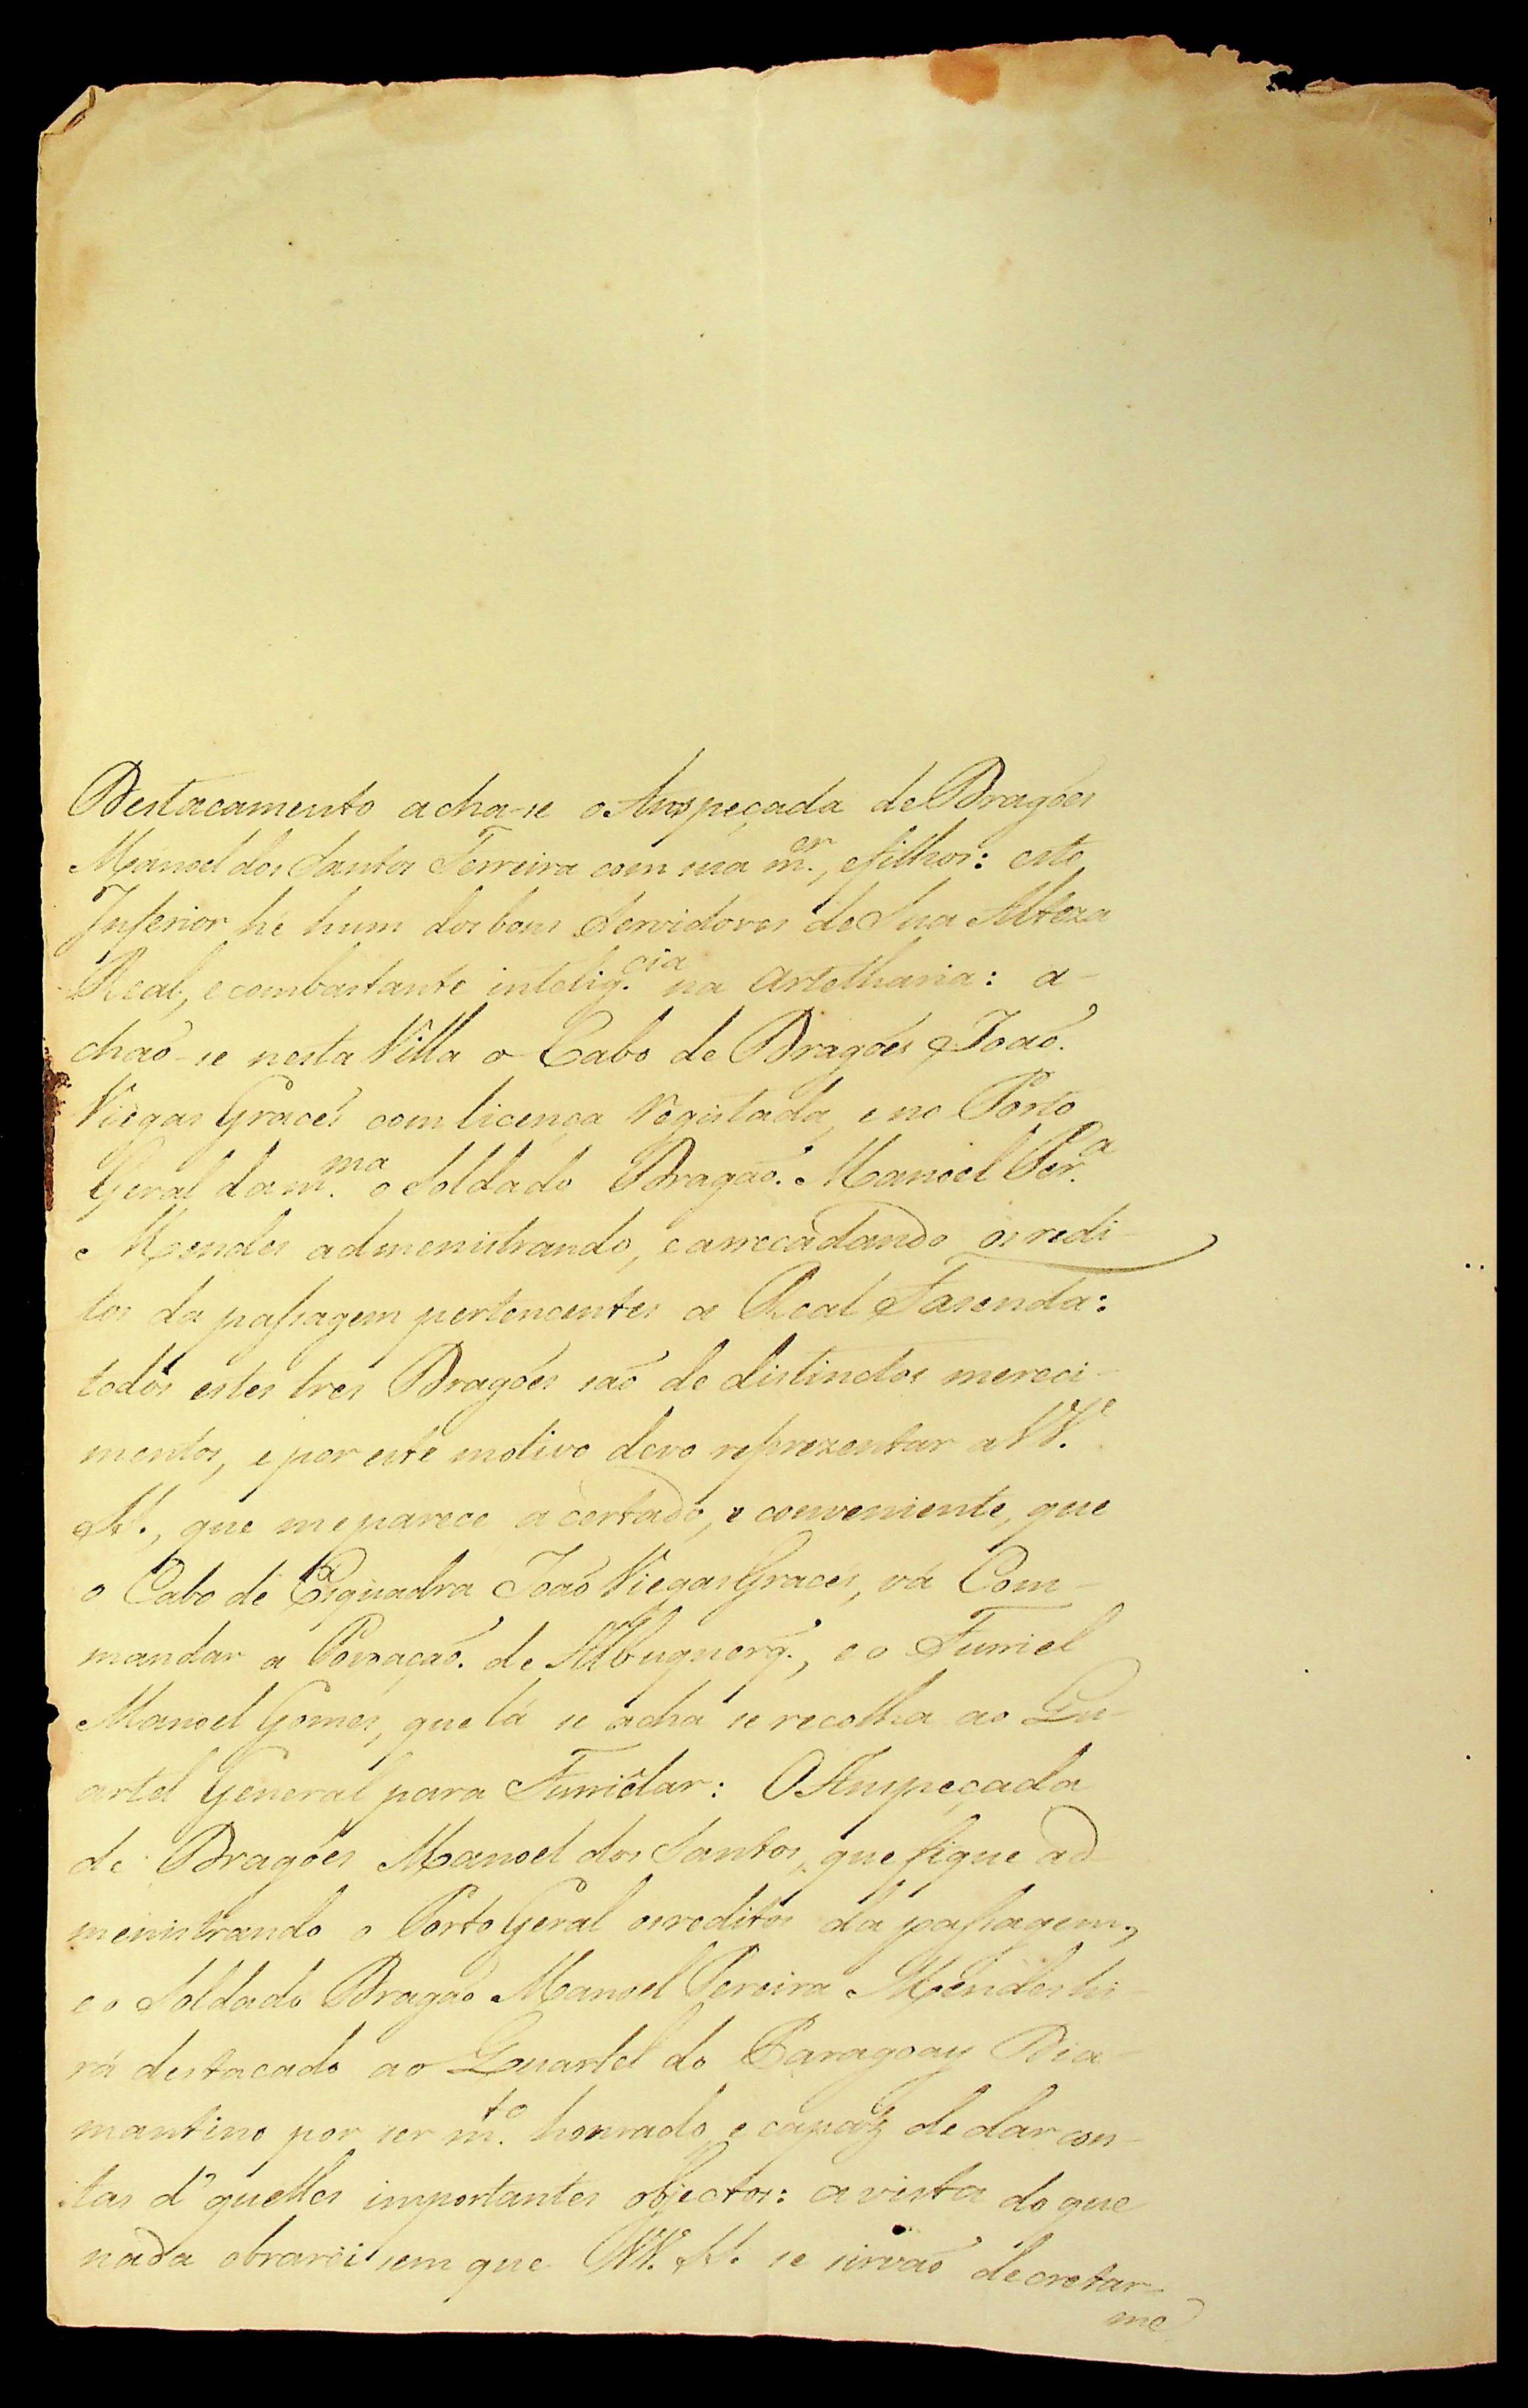 Destacamento acha-se o Anspeçada de Dragoẽs
Manoel dos Santos Ferreira com sua m.er, e filhos: este
Inferior hé hum dos bons Servidores de Sua Alteza
Real, e com bastante intelig.cia na Artelharia: a-
chaõ-se nesta Villa o Cabo de Dragoẽs Joaõ
Viegas Graces com licença Registada, e no Porto
Geral da m.ma o Soldado Dragaõ Manoel Per.a
Mendes admenistrando, e arrecadando os redi-
tos da passagem pertencentes a Real Fasenda:
todos estes tres Dragoẽs saõ de distinctos mereci-
mentos, e por este motivo devo reprezentar a VV.
SS., que me parece acertado, e conveniente, que
o Cabo de Esquadra Joaõ Viegas Graces, vá Com-
mandar a Povoaçaõ de Albuquerq., e o Furriel
Manoel Gomes, que lá se acha se recolha ao Qu-
artel General para Furrielar: O Anspeçada
de Dragoẽs Manoel dos Santos, que fique ad-
menistrando o Porto Geral os reditos da passagem,
e o Soldado Dragaõ Manoel Pereira Mendes hi-
rá destacado ao Quartel do Paragoay Dia-
mantino por ser m.to honrado, e capaz de dar con-
tas d'quelles importantes objectos: a vista do que
nada obrarei sem que VV. SS. se sirvaõ decretar-
me